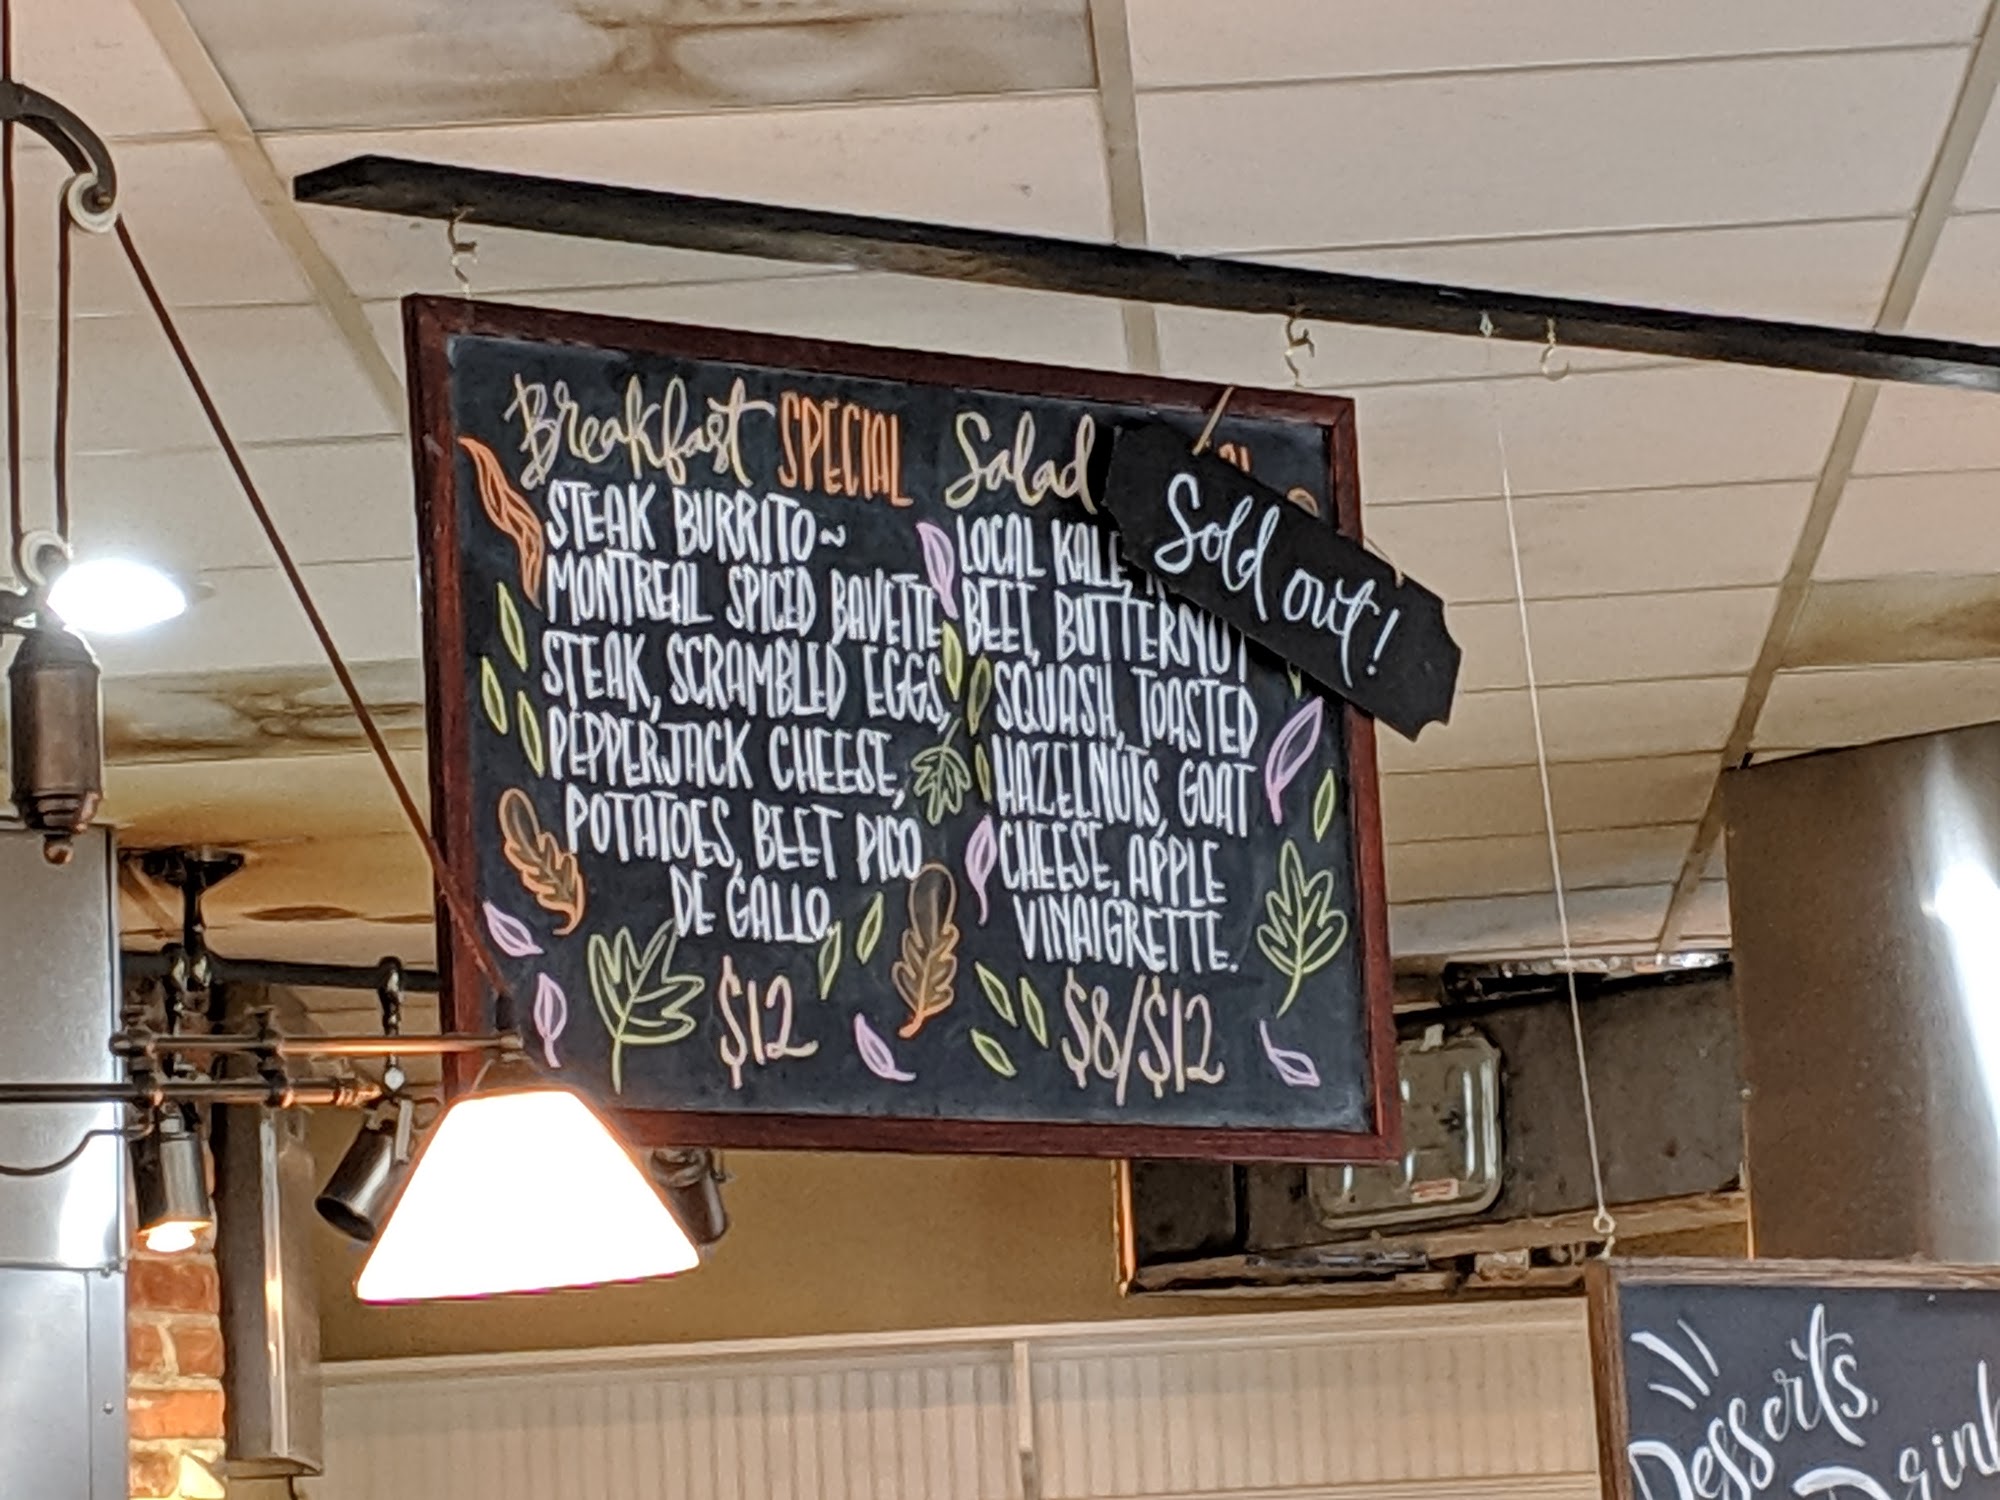 Breakfast SPECIAL
STEAK BURRITO~
MONTREAL SPICED BAVETTE
STEAK, SCRAMBLED EGGS,
PEPPERJACK CHEESE,
POTATOES, BEET PICO
DE GALLO.
$12
Salad
LOCAL KALE,
BEET, BUTTERNUT
SQUASH, TOASTED
HAZELNUTS, GOAT
CHEESE, APPLE
VINAIGRETTE.
$8/$12
Sold out!
Desserts,